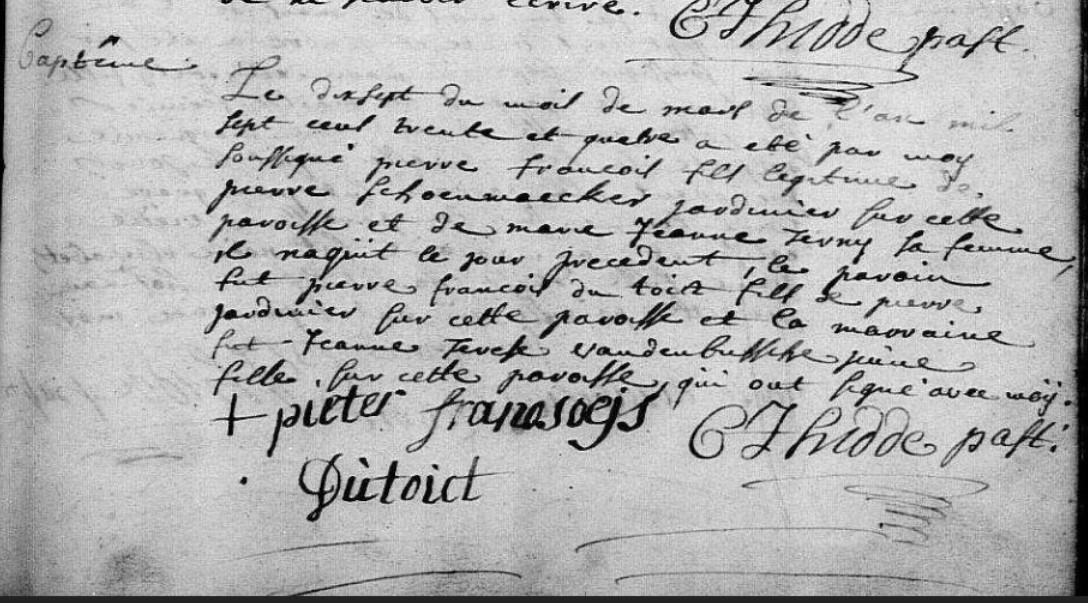 de ne savoir écrire. CJ hidde past.
Baptême
Le dixsept du mois de mars de l'an mil
sept cent trente et quatre a eté par moy
soussigné pierre francois fils legitime de
pierre Schoenmaecker jardinier sur cette
paroisse et de marie Jeanne Terny sa femme,
il naquit le jour precedent, le parain
fut pierre francois du toict fils de pierre
jardinier sur cette paroisse et la marraine
fut Jeanne Terese vandenbussche jeune
fille sur cette paroisse, qui ont signé avec moÿ.
+ pieter fransoejs CJ hidde past.
Dùtoict